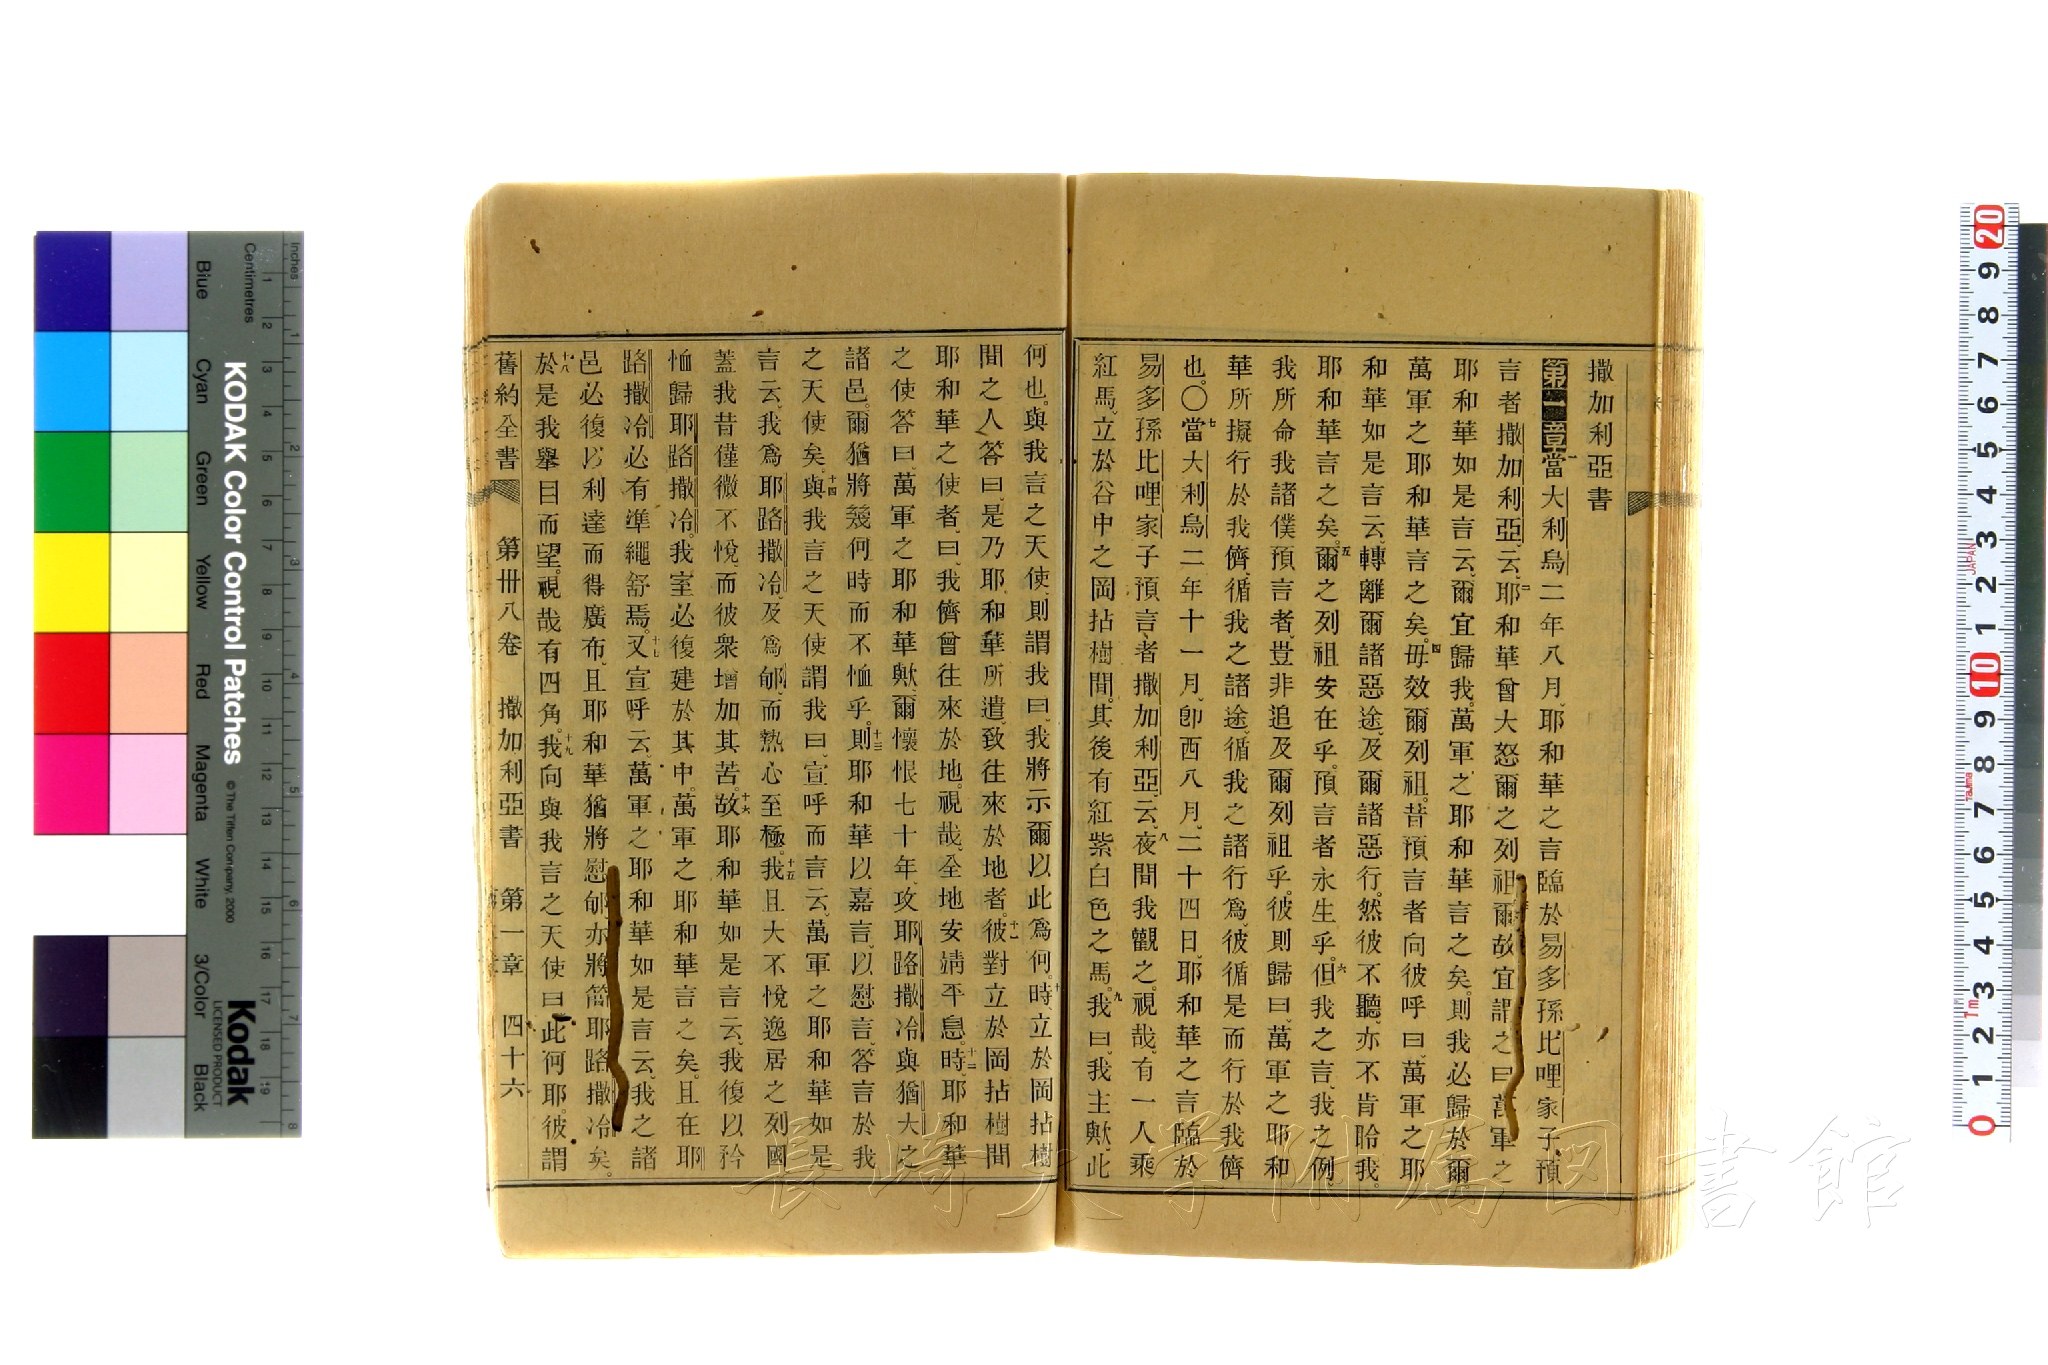 撒加利亞書
第一章 一當大利烏二年八月、耶和華之言臨於易多孫比哩家子、預
言者撒加利亞、云、二耶和華曾大怒爾之列祖、爾故宜謂之曰、萬軍之
耶和華如是言云、爾宜歸我。萬軍之耶和華言之矣。則我必歸於爾
萬軍之耶和華言之矣。四毋效爾列祖。昔預言者向彼呼曰、萬軍之耶
和華如是言云、轉離爾諸惡途、及爾諸惡行。然彼不聽、亦不肯聆我。
耶和華言之矣。五爾之列祖安在乎。預言者永生乎。六但我之言、我之例、
我所命我諸僕預言者、豈非追及爾列祖乎。彼則歸曰、萬軍之耶和
華所擬行於我儕、循我之諸途、循我之諸行爲、彼循是而行於我儕
也。〇七當大利烏二年十一月、卽西八月、二十四日、耶和華之言臨於
易多孫比哩家子預言者撒加利亞、云、八夜間我觀之。視哉、有一人乘
紅馬、立於谷中之岡拈樹間。其後有紅紫白色之馬。九我曰、我主歟、此
何也。與我言之天使、則謂我曰、我將示爾以此爲何。十時、立於岡拈樹
間之人答曰、是乃耶和華所遣、致往來於地者。十一彼對立於岡拈樹間
耶和華之使者、曰、我儕曾往來於地。視哉、全地安靖平息。十二時、耶和華
之使答曰、萬軍之耶和華歟、爾懷恨七十年、攻耶路撒冷與猶大之
諸邑。爾猶將幾何時而不恤乎。十三則耶和華以嘉言、以慰言、答言於我
之天使矣。十四與我言之天使謂我曰、宣呼而言云、萬軍之耶和華如是
言云、我爲耶路撒冷、及爲郇、而熱心至極。十五我且大不悅逸居之列國
蓋我昔僅微不悅、而彼衆增加其苦。十六故耶和華如是言云、我復以矜
恤歸耶路撒冷。我室必復建於其中。萬軍之耶和華言之矣。且在耶
路撒冷必有準繩舒焉。十七又宣呼云、萬軍之耶和華如是言云、我之諸
邑必復以利達而得廣布、且耶和華猶將慰郇、亦將簡耶路撒冷矣。
十八於是我舉目而望。視哉有四角。十九我向與我言之天使曰、此何耶。彼謂
舊約全書 第卅八卷 撒加利亞書 第一章 四十六
KODAK Color Control Patches
© The Tiffen Company, 2000
Kodak
LICENSED PRODUCT
Inches
Centimetres
Blue Cyan Green Yellow Red Magenta White 3/Color Black
1 2 3 4 5 6 7 8 9 10 11 12 13 14 15 16 17 18 19
1 2 3 4 5 6 7 8
20 9 8 7 6 5 4 3 2 1 10 9 8 7 6 5 4 3 2 1 0
JAPAN
Tajima
長崎大学附属図書館